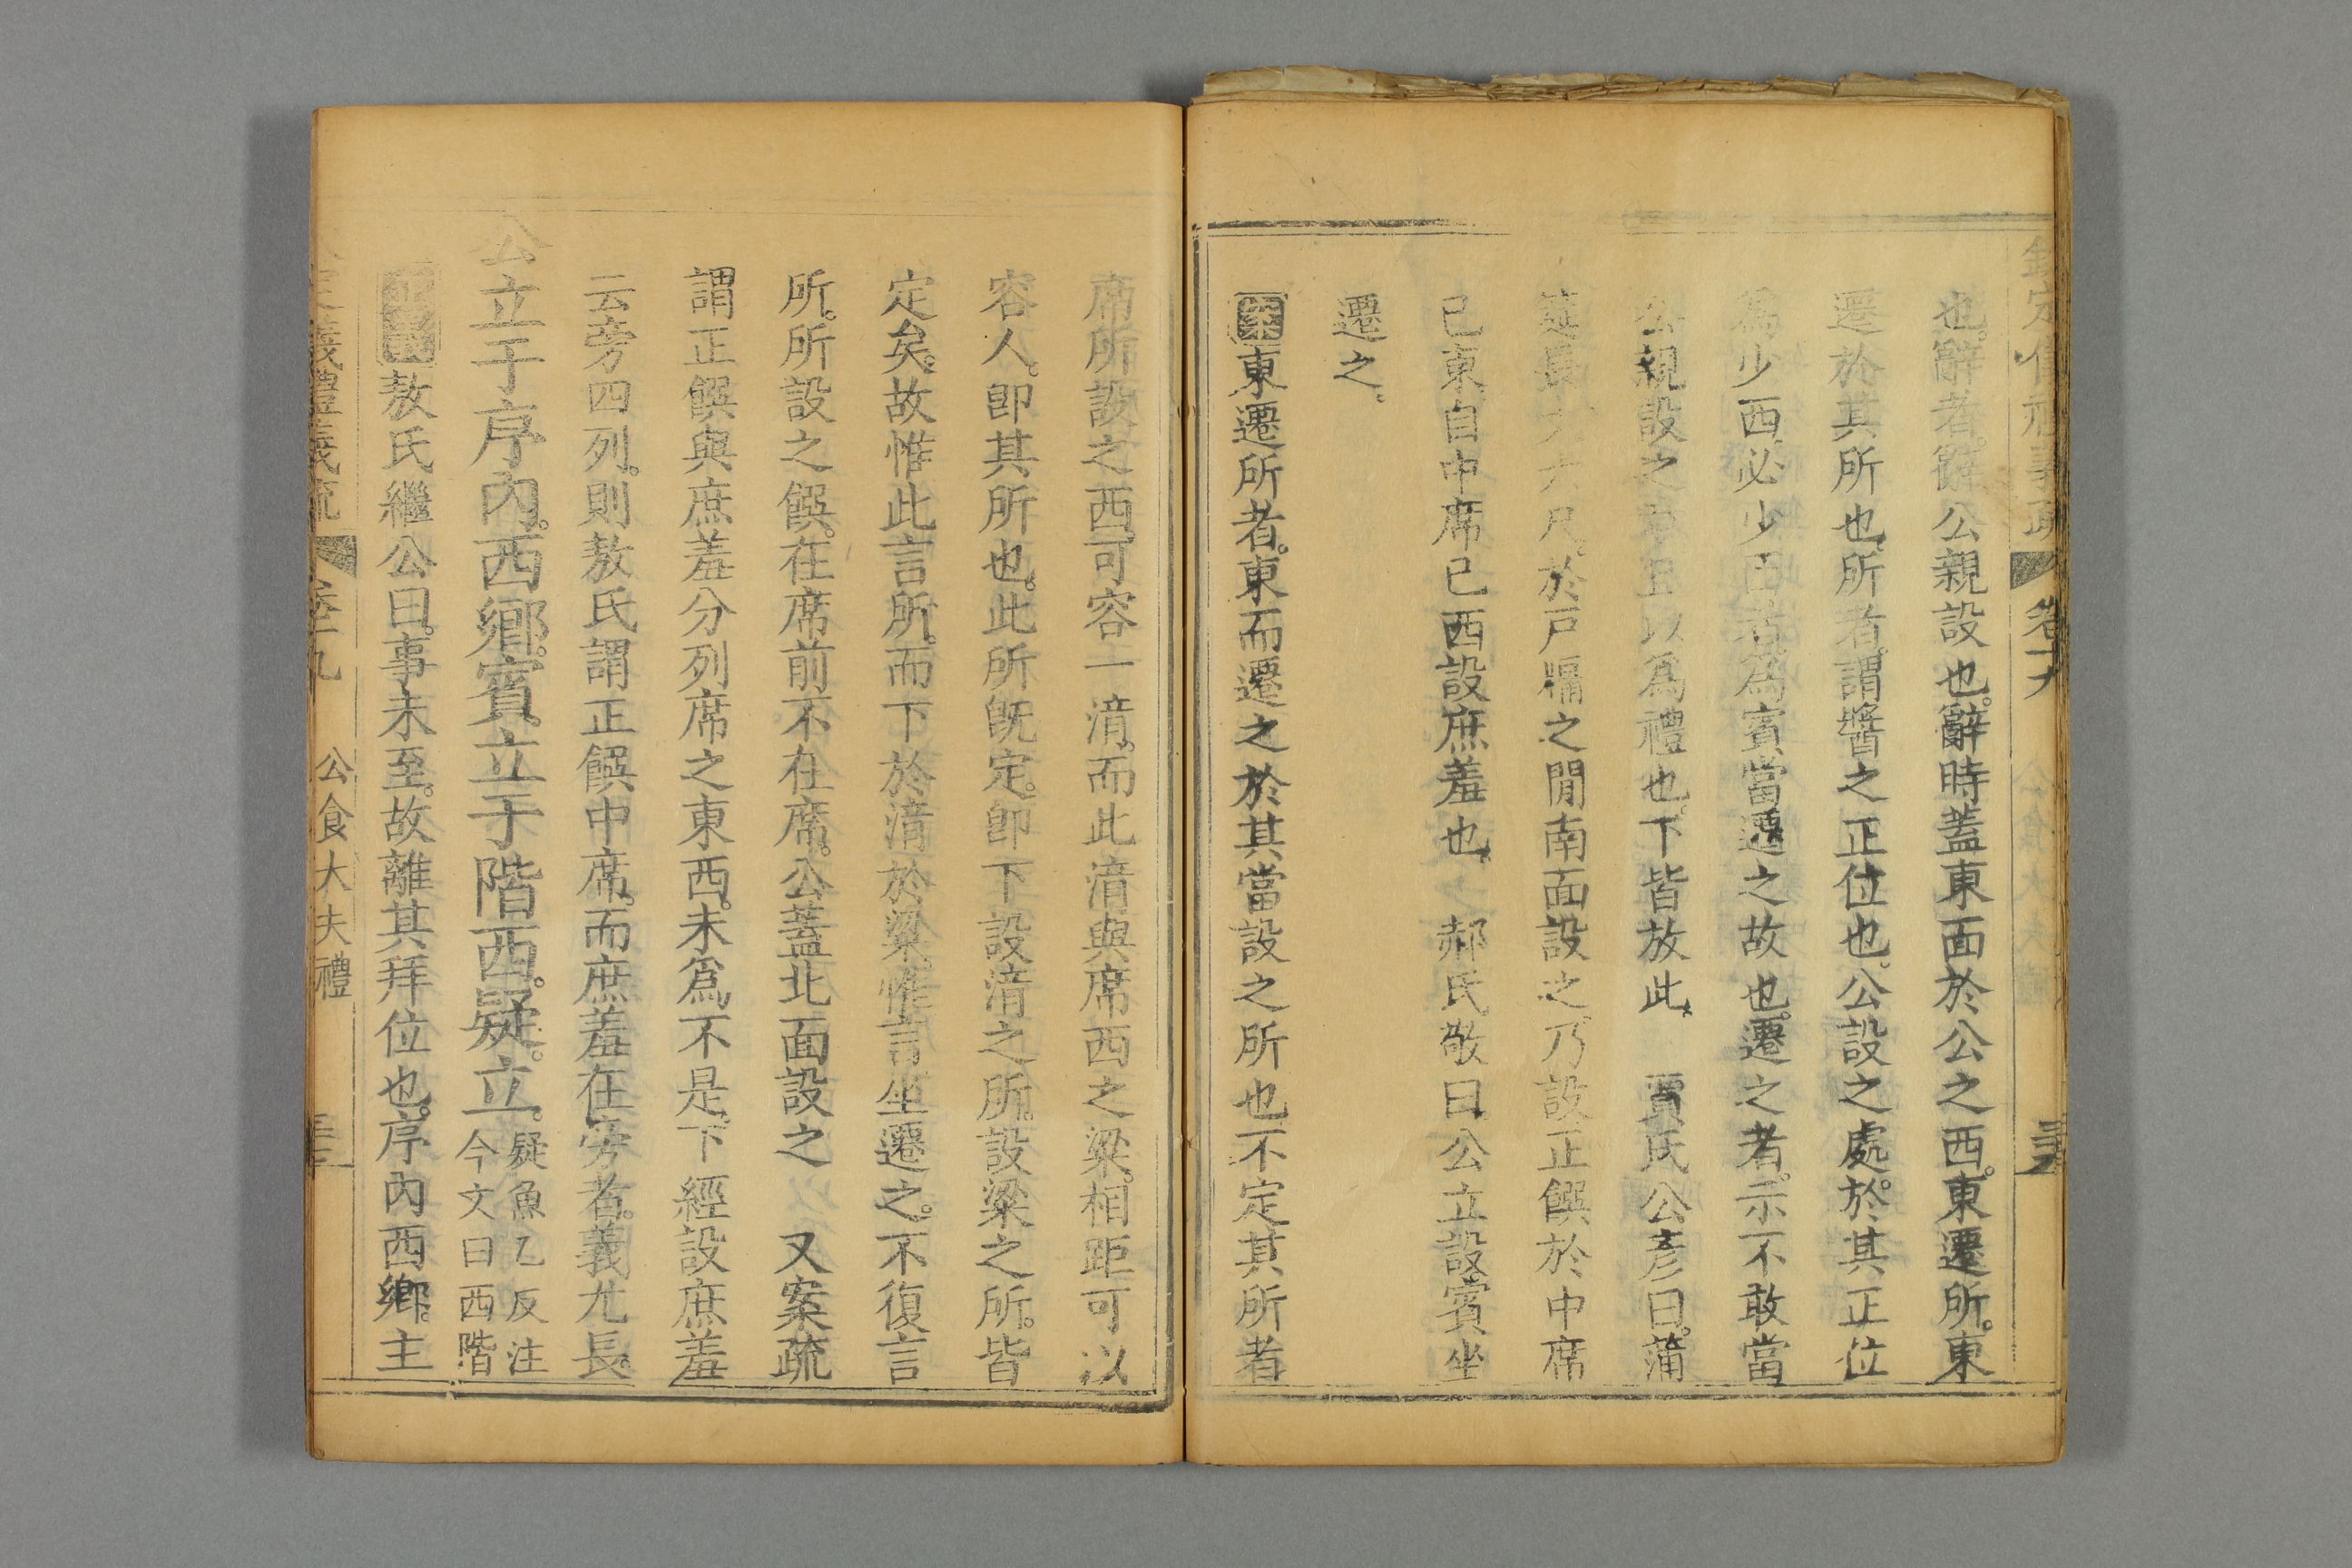 也。辭者。辭公親設也。辭時蓋東面於公之西。東遷所。東
遷於其所也。所者。謂醬之正位也。公設之處。於其正位
爲少西。必少西者。爲賓當遷之故也。遷之者。示不敢當
公親設之意。且以爲禮也。下皆放此。 賈氏公彥曰。蒲
筵長丈六尺。於戶牖之閒南面設之。乃設正饌於中席
已東。自中席已西設庶羞也。 郝氏敬曰。公立設。賓坐
遷之。
案東遷所者。東而遷之於其當設之所也。不定其所者
席所設之西。可容一湆。而此湆與席西之粱。相距可以
容人。卽其所也。此所旣定。卽下設湆之所。設粱之所。皆
定矣。故惟此言所。而下於湆於粱惟言坐遷之。不復言
所。所設之饌。在席前不在席。公蓋北面設之 又案疏
謂正饌與庶羞分列席之東西。未爲不是。下經設庶羞
云旁四列。則敖氏謂正饌中席。而庶羞在旁者。義尤長
公立于序內。西鄉。賓立于階西。疑。立。疑魚乙反注
今文曰西階
敖氏繼公曰。事未至。故離其拜位也。序內西鄉。主
義禮義疏 卷十九 公食大夫禮